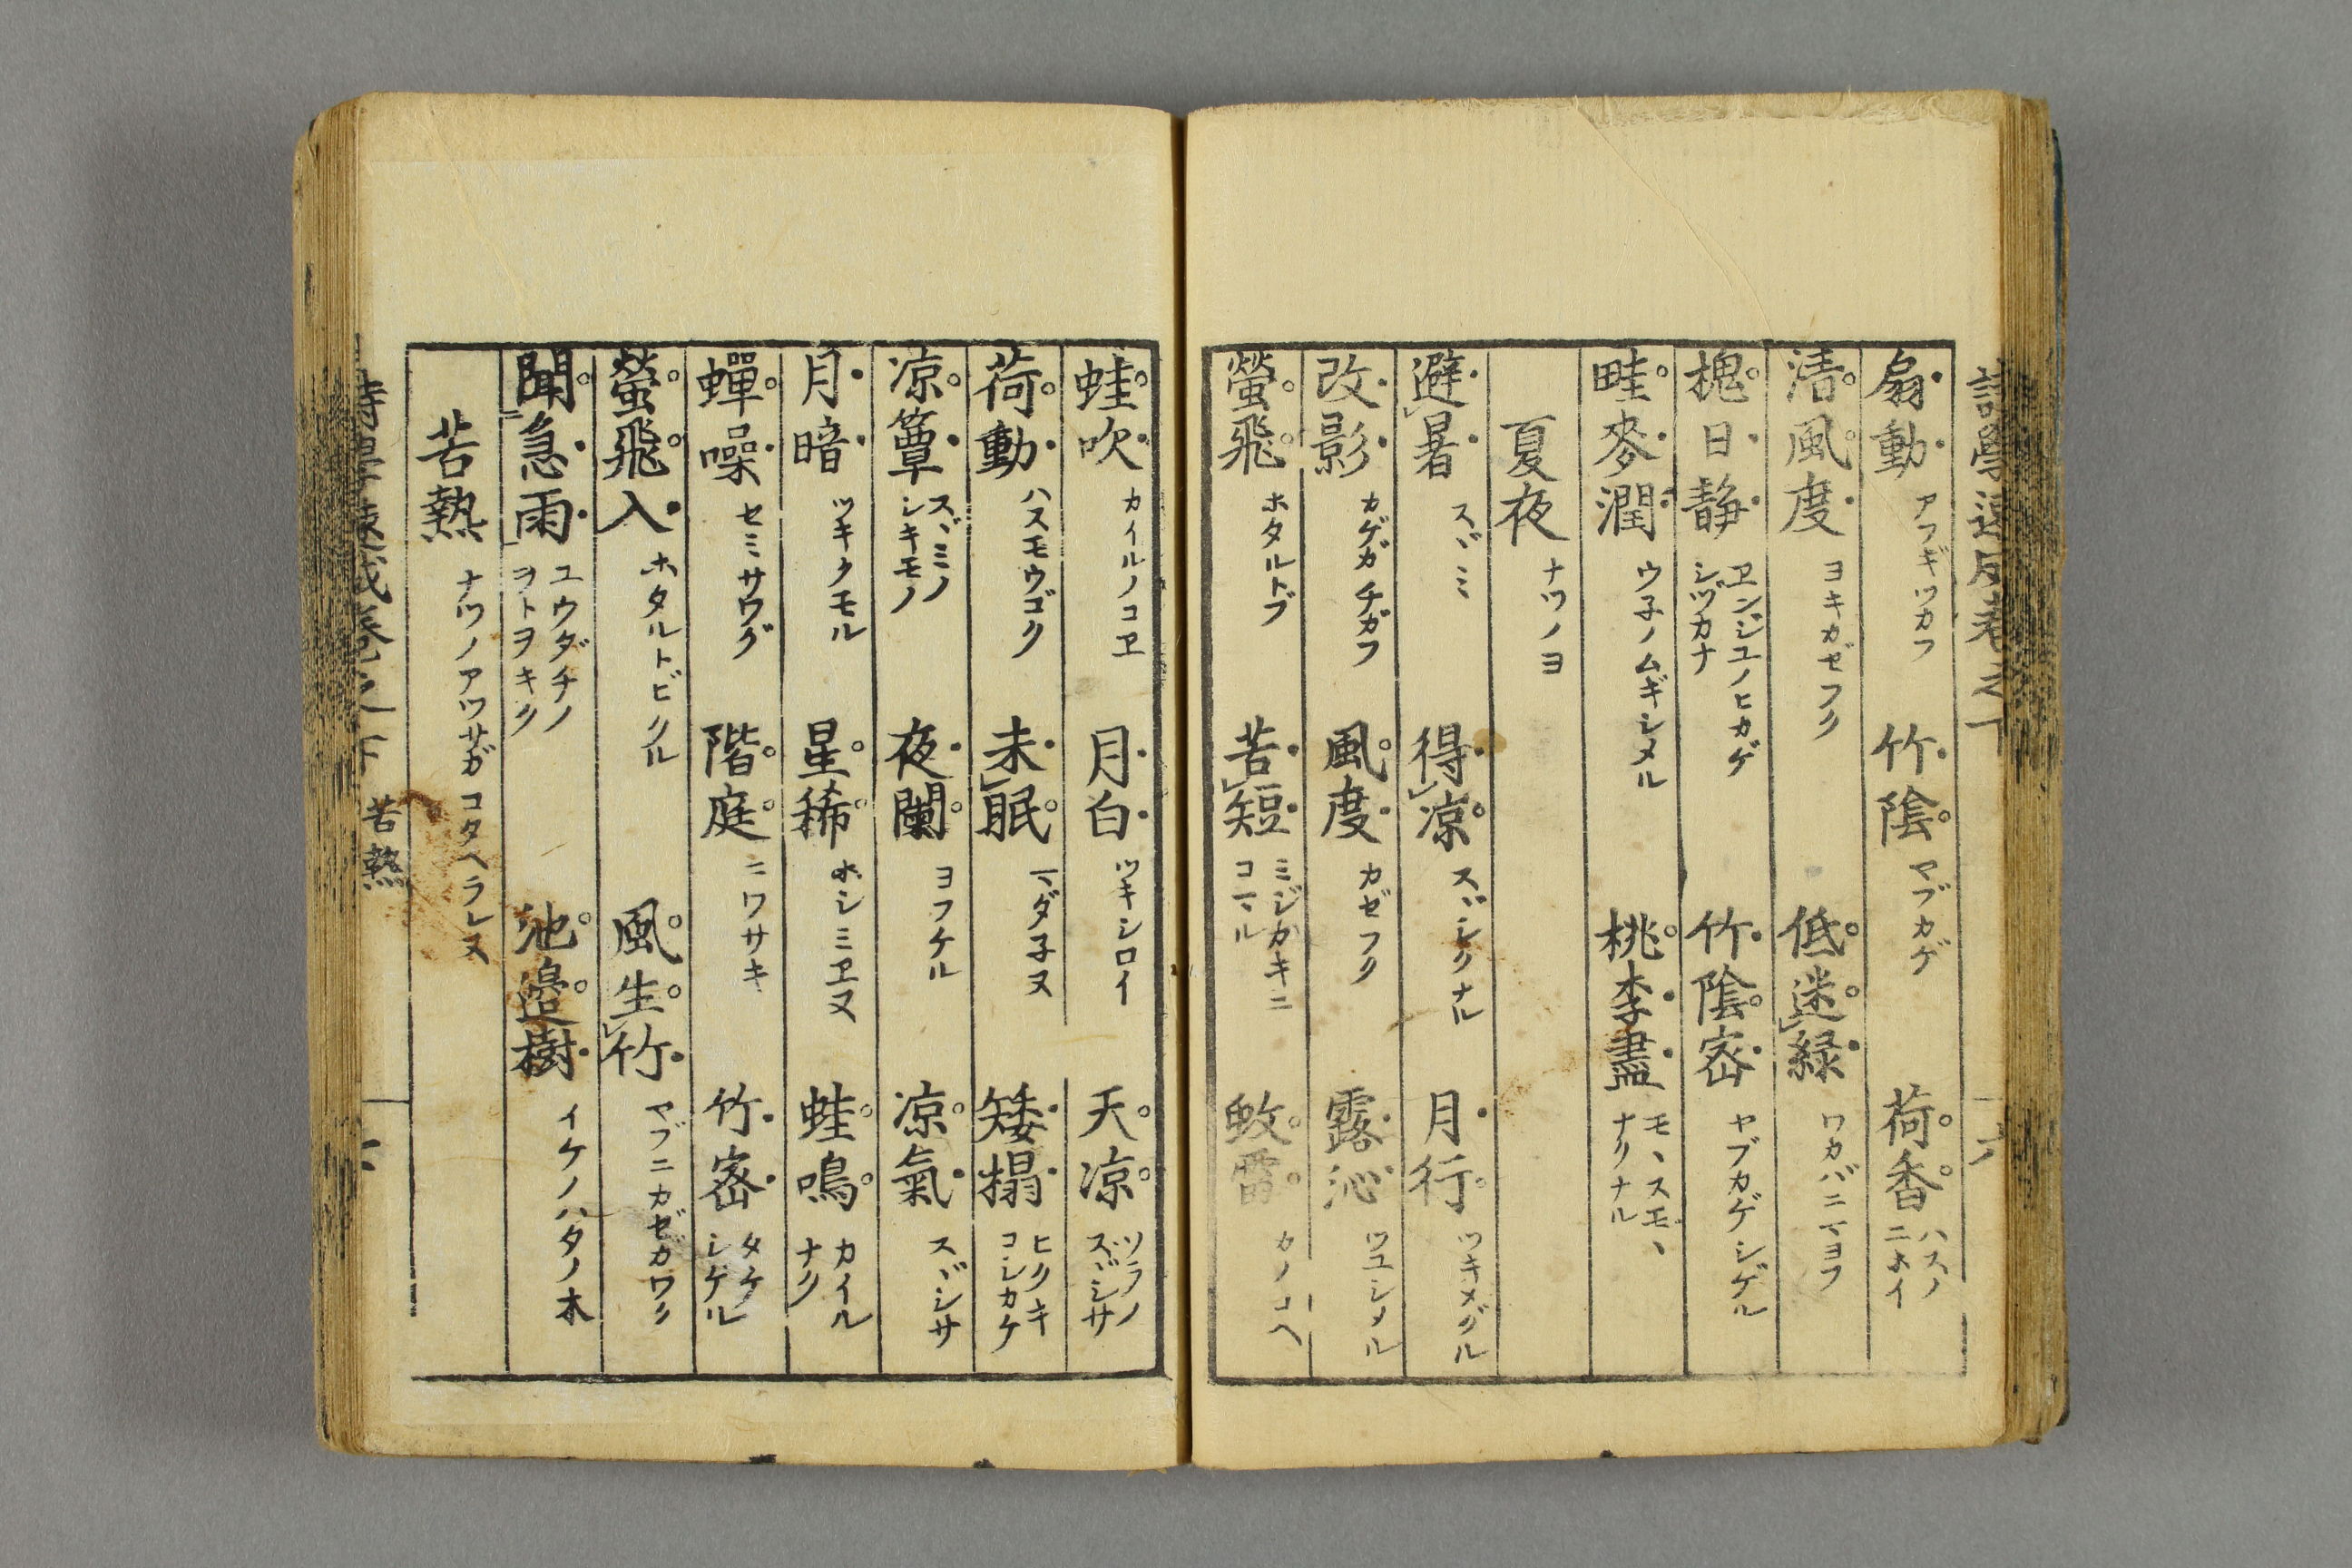 扇動 アフギツカフ 竹陰 ヤブカゲ 荷香 ハスノニホイ
清風度 ヨキカゼフク 低迷緑 ワカバニマヨフ
槐日静 ヱンジユノヒカゲシヅカナ 竹陰密 ヤブカゲシゲル
畦麥潤 ウ子ノムギシメル 桃李盡 モヽスモヽナクナル
夏夜 ナツノヨ
避暑 スヾミ 得凉 スヾシクナル 月行 ツキメグル
改影 カゲガチガフ 風度 カゼフク 露沁 ツユシメル
螢飛 ホタルトブ 苦短 ミジカキニコマル 蚊雷 カノコヘ
蛙吹 カイルノコヱ 月白 ツキシロイ 天凉 ソラノスヾシサ
荷動 ハスモウゴク 未眠 マダ子ヌ 矮榻 ヒクキコシカケ
凉簟 スヾミノシキモノ 夜闌 ヨフケル 凉氣 スヾシサ
月暗 ツキクモル 星稀 ホシミヱヌ 蛙鳴 カイルナク
蟬噪 セミサワグ 階庭 ニワサキ 竹密 タケシゲル
螢飛入 ホタルトビクル 風生竹 ヤブニカゼガワク
聞急雨 ユウダチノヲトヲキク 池邉樹 イケノハタノ木
苦熱 ナツノアツサガコタヘラレヌ
苦熱